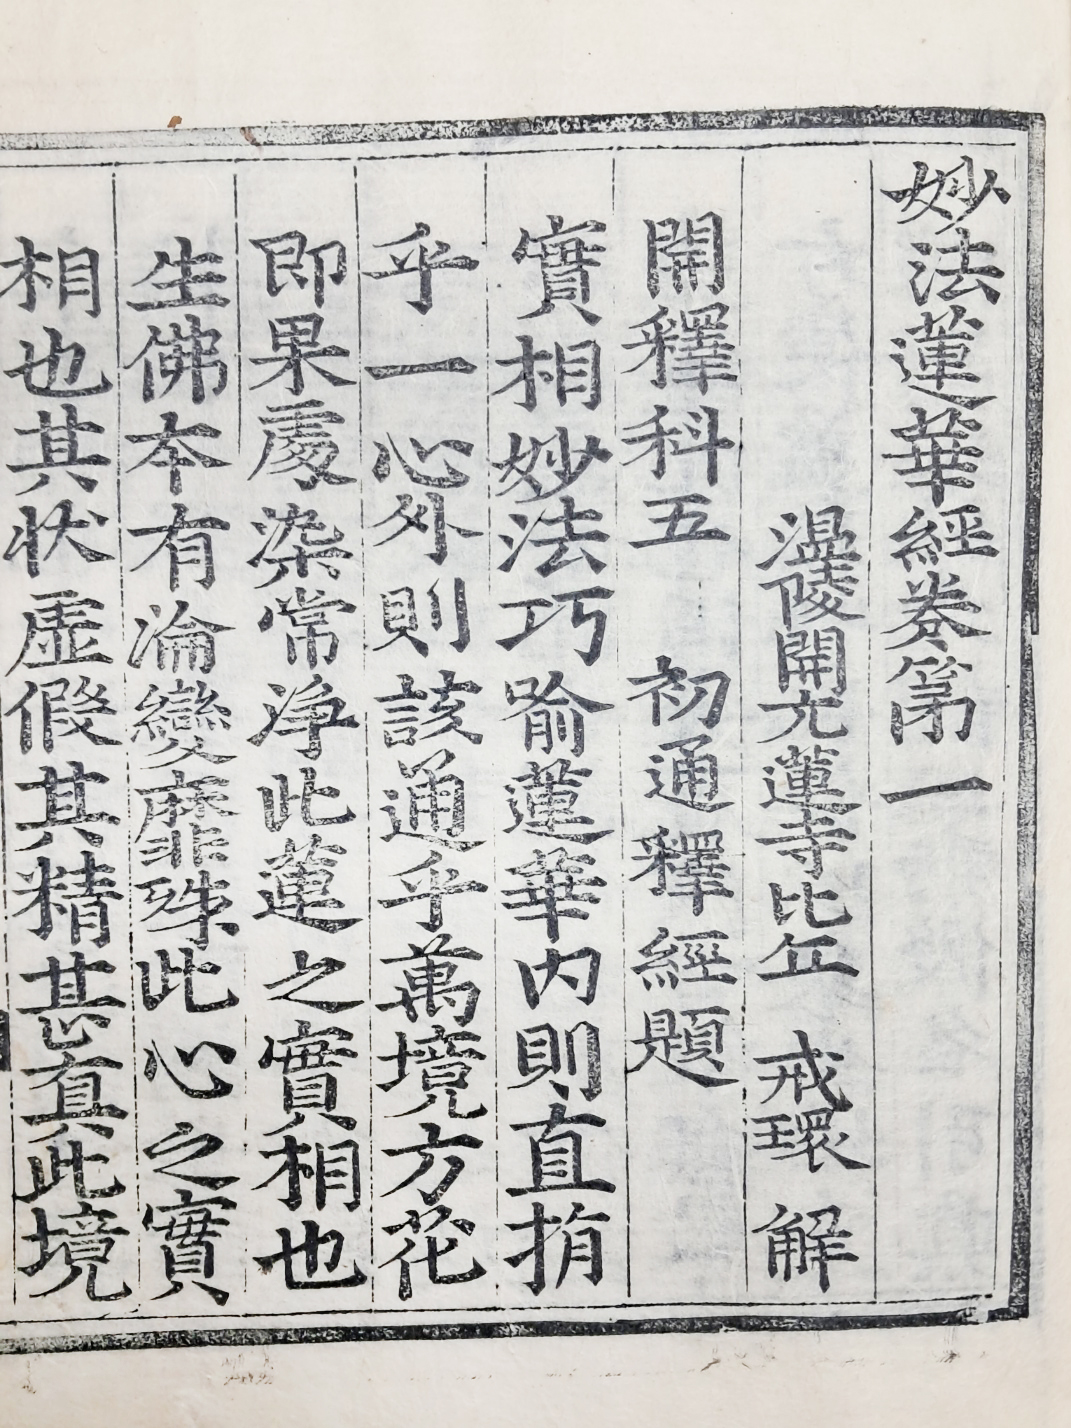 妙法蓮華經卷第一
温陵開元蓮寺比丘 戒環 解
開釋科五 初通釋經題
實相妙法巧喻蓮華内則直指
乎一心外則該通乎萬境方花
即果處染常淨此蓮之實相也
生佛本有淪變靡殊此心之實
相也其状虛假其精甚真此境